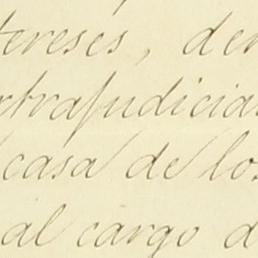 tereses, der
xtrajudicias
casa de los
al cargo d